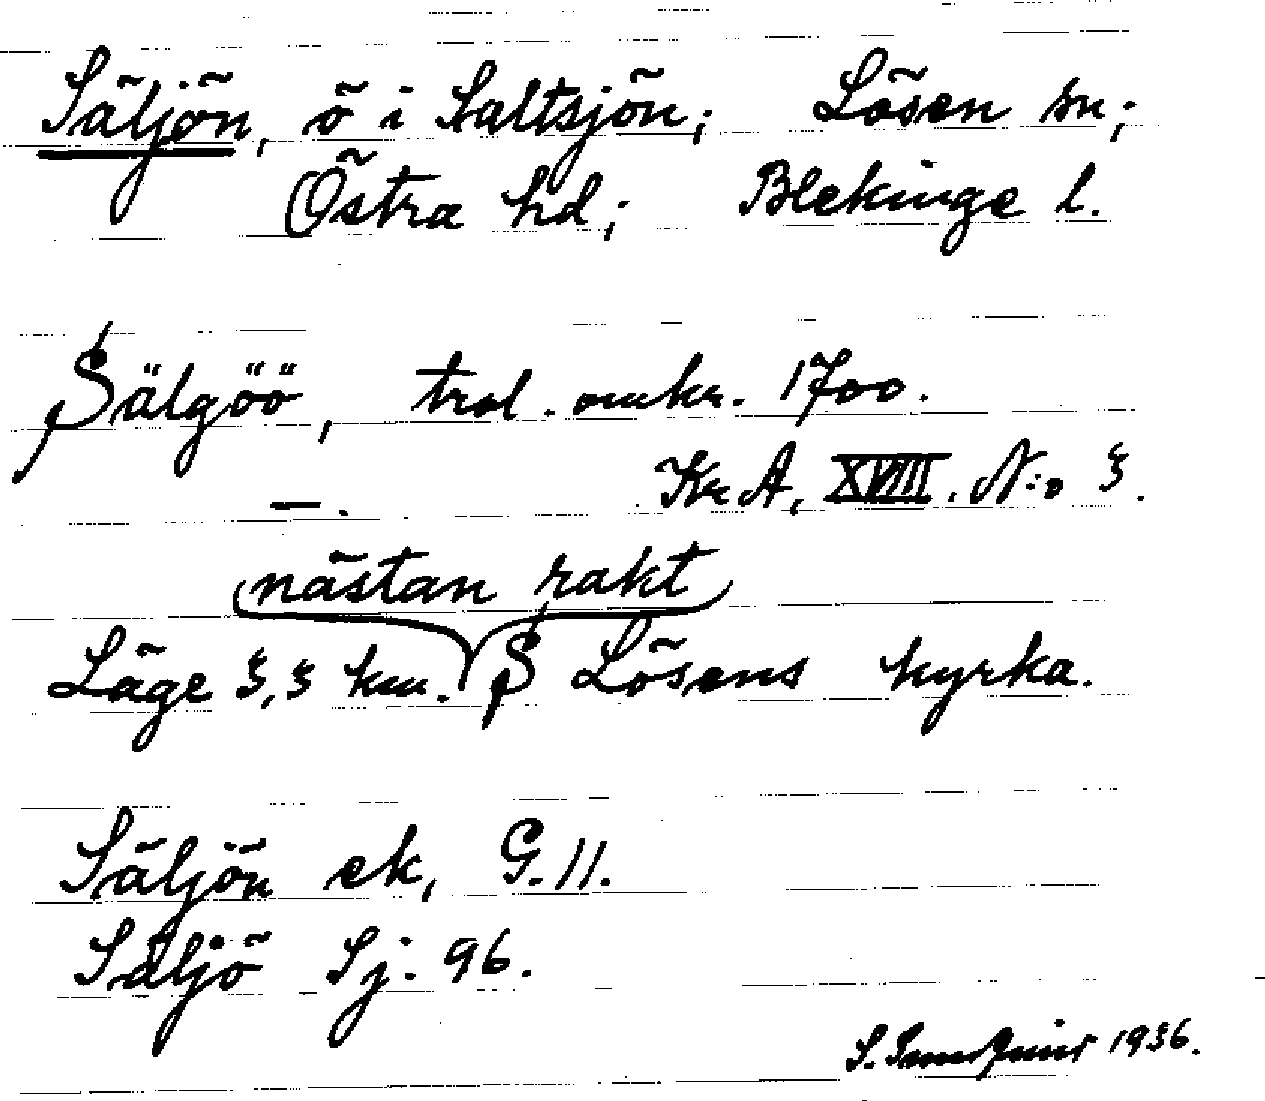 Säljön, ö i Saltsjön; Lösen sn;
Östra hd; Blekinge l.
Sälgöö, trol. omkr. 1700.
—. Kr A, XVIII. N:o 3.
nästan rakt
Läge 3,3 km. S Lösens kyrka.
Säljön ek, G. 11.
Säljö Sj. 96.
S. 1936.